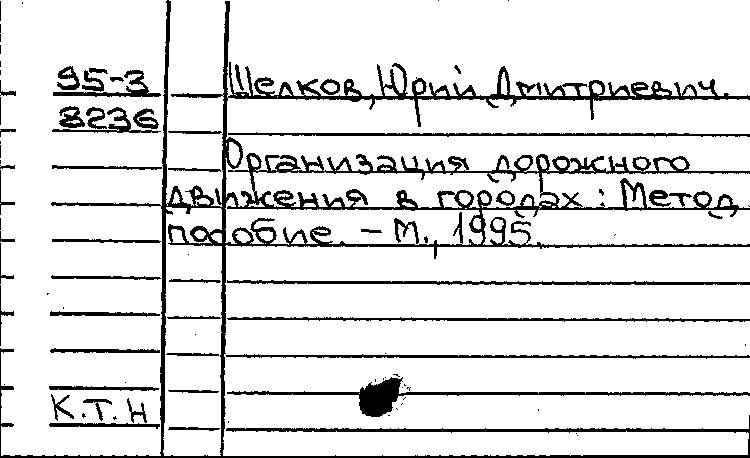 95-3 Шелков, Юрий Дмитриевич.
8236
Организация дорожного
движения в городах : Метод
пособие. – М., 1995.
К.Т.Н